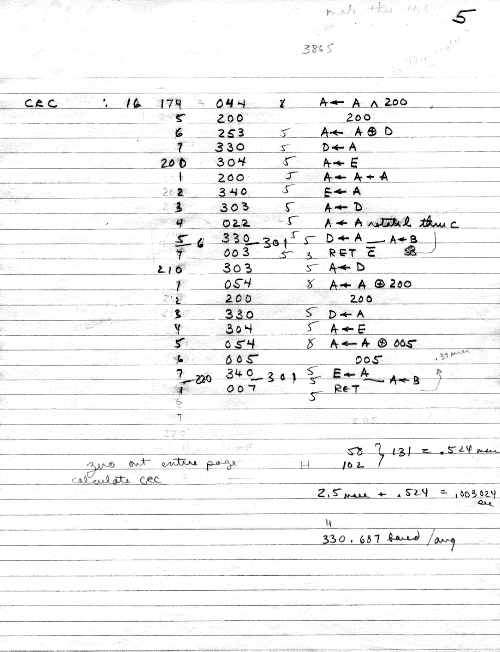 5
3865
CRC : 16 174 044 8 A ← A ∧ 200
5 200 200
6 253 5 A ← A ⊕ D
7 330 5 D ← A
200 304 5 A ← E
1 200 5 A ← A + A
2 340 5 E ← A
3 303 5 A ← D
4 022 5 A ← A rotated thru C
5 6 330 — 301 5 5 D ← A — A ← B
7 003 5 3 RET C̅
210 303 5 A ← D
1 054 8 A ← A ⊕ 200
2 200 200
3 330 5 D ← A
4 304 5 A ← E
5 054 8 A ← A ⊕ 005
6 005 005
7 — 220 340 — 301 5 5 E ← A — A ← B
1 007 5 RET
6
7
zero out entire page
calculate CRC
58 } 131 = .524 msec
H 102
2.5 msec + .524 = .003024 sec
4
330.687 baud / avg